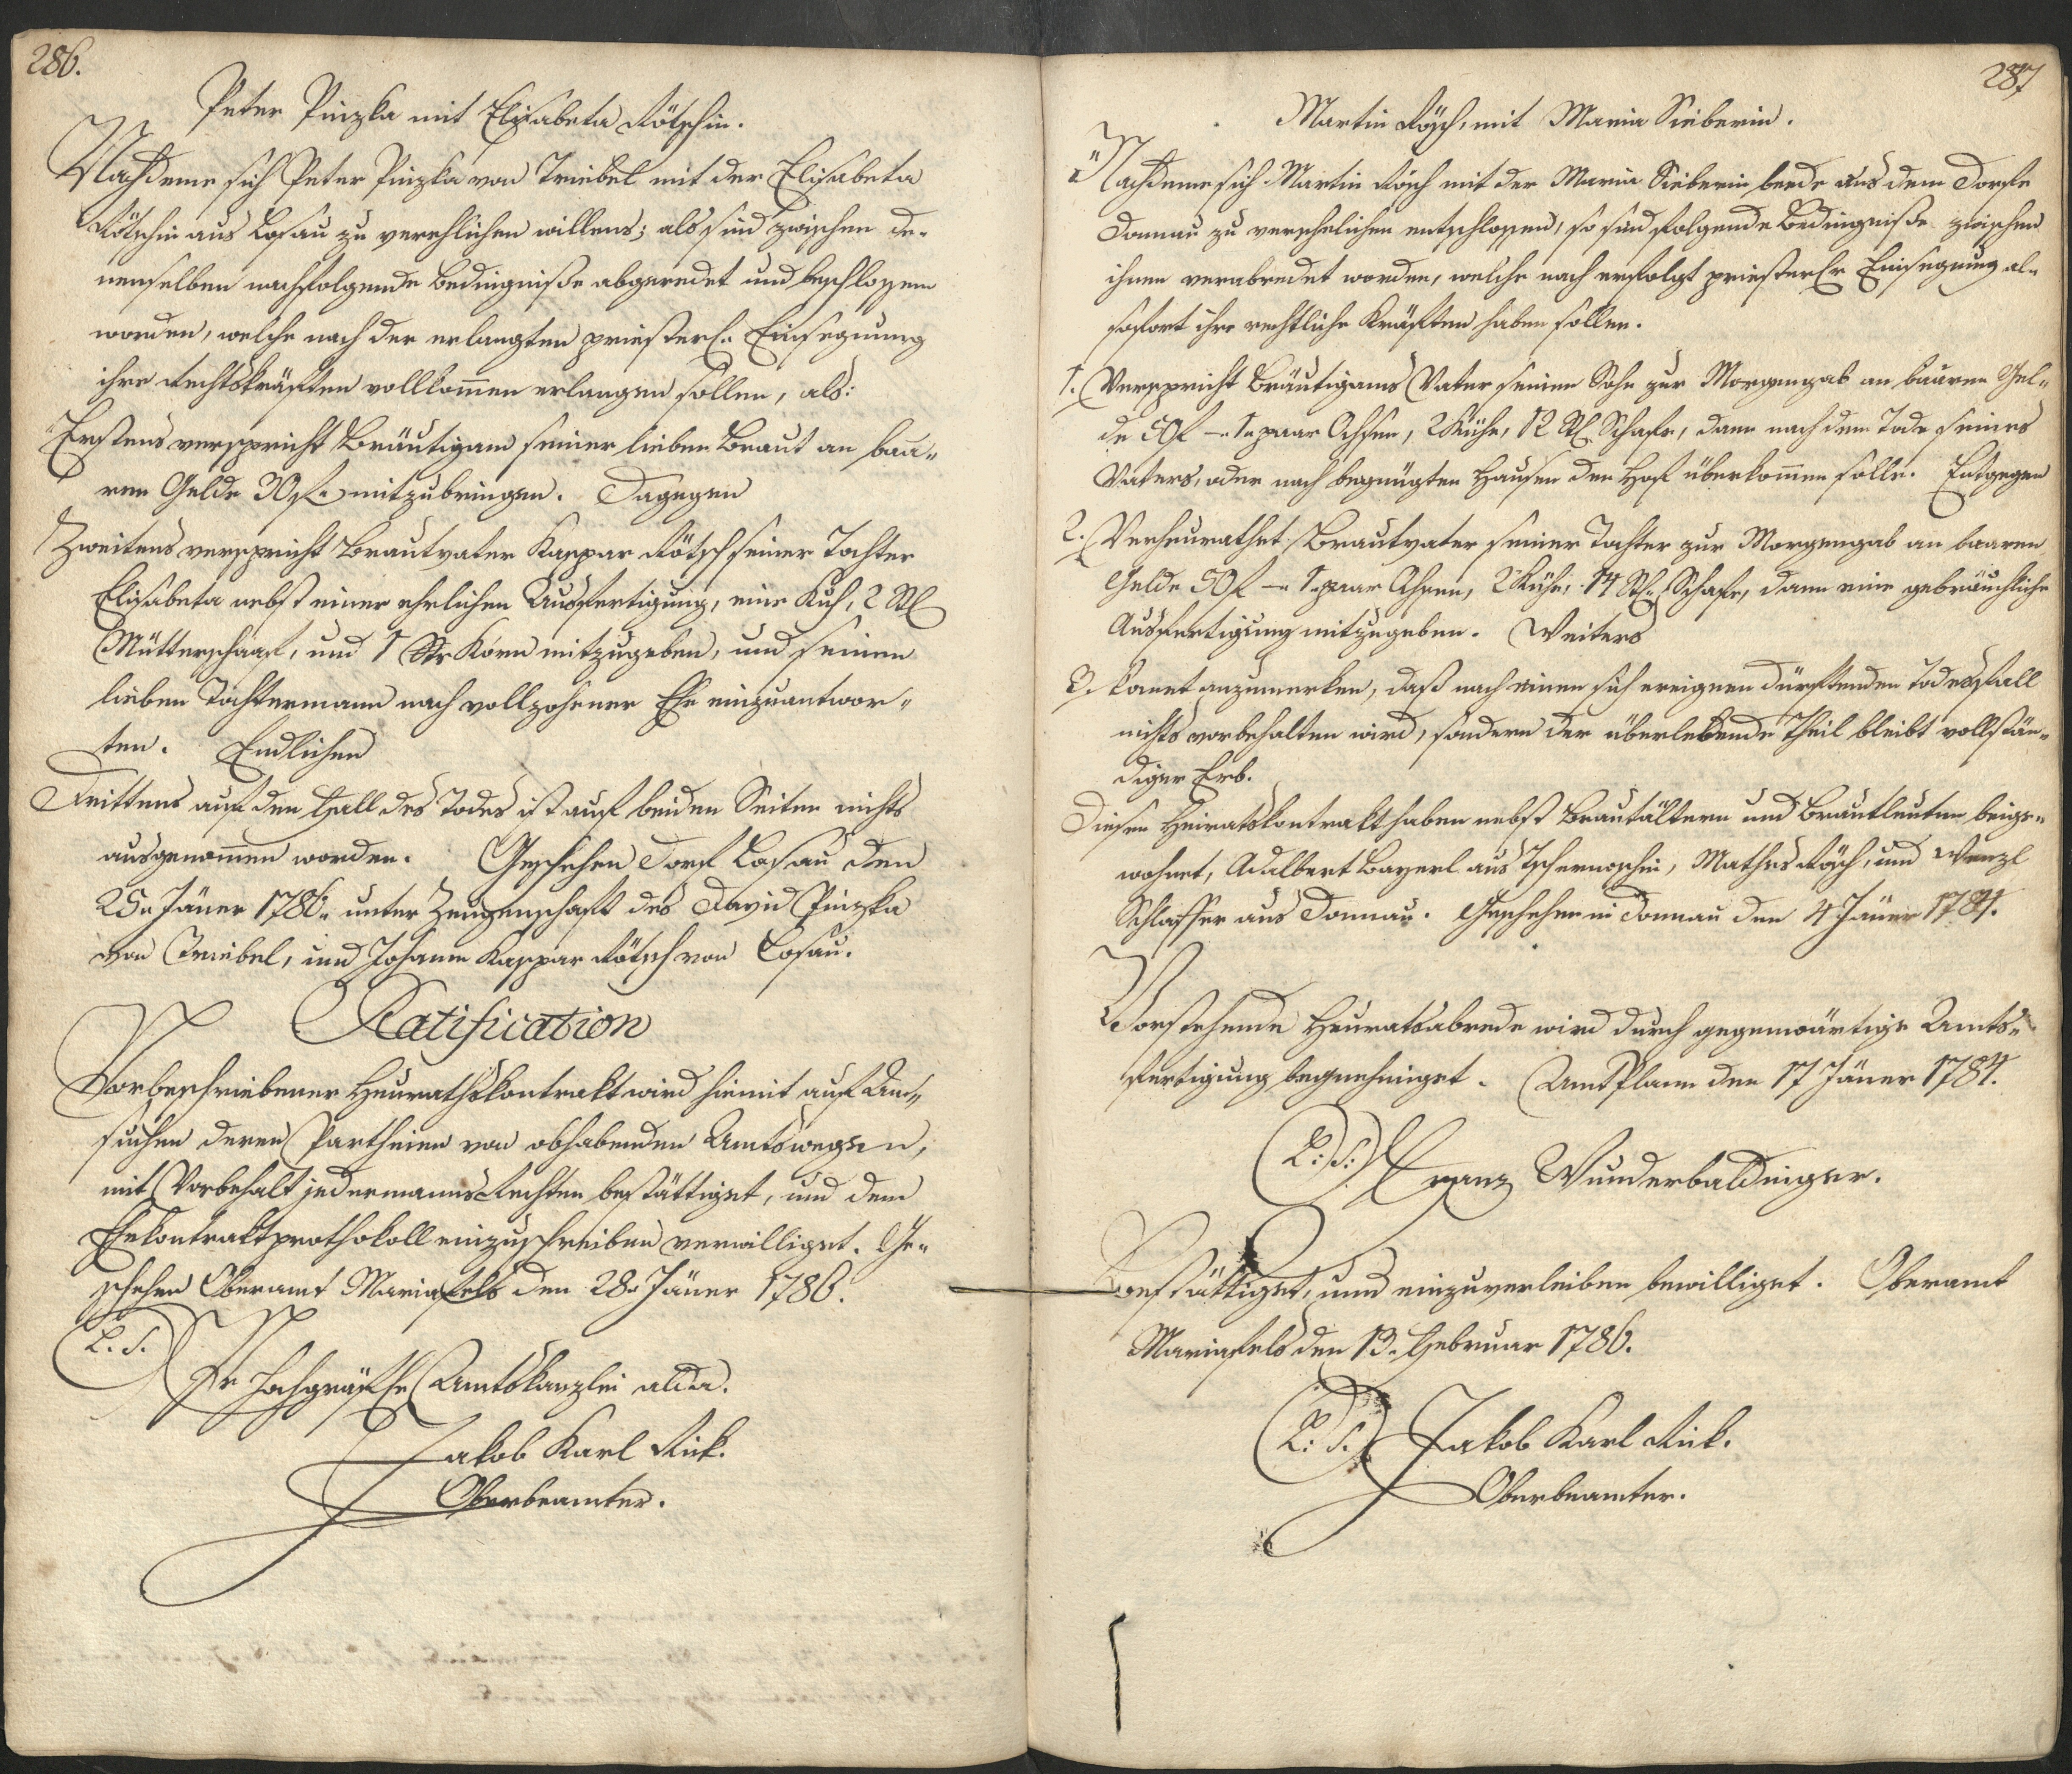 286.
Peter Pinzka mit Elisabeta Rötschin.
Nachdeme sich Peter Pinzka von Triebel mit der Elisabeta
Rötschin aus Losau zu verehlichen willens; als sind zwischen de-
nenselben nachfolgende Bedingniße abgeredet und beschlossen
worden, welche nach der erlangten priesterl. Einsegnung
ihre Rechtskräften vollkomen erlangen sollen, als:
Erstens verspricht Bräutigam seiner lieben Braut an baa-
ren Gelde 30 f. mitzubringen. Dagegen
Zweitens verspricht Brautvater Kaspar Rötsch seiner Tochter
Elisabeta nebst einer ehrlichen Ausfertigung, eine Kuh, 2 Stl
Mütterschaaf, und 1 Str Korn mitzugeben, und seinen
lieben Tochtermann nach vollzohener Ehe einzuantwor-
ten. Endlichen
Drittens auf den Fall des Todes ist auf beiden Seiten nichts
ausgenomen worden. Geschehen Dorf Losau den
25. Jäner 1786. unter Zeugenschaft des David Pinzka
von Triebel, und Johann Kaspar Rötsch von Losau.
Ratification
Vorbeschriebener Heurathskontrakt wird hiemit auf An-
suchen deren Partheien von obhabenden Amtswegen,
mit Vorbehalt jedermanns Rechten bestättiget, und dem
Ehekontraktprothokoll einzuschreiben verwilliget. Ge-
schehen Oberamt Mariafels den 28. Jäner 1786.
L. S.
Hochgräfl. Amtskanzlei allda.
Jakob Karl Rick.
Oberbeamter.
287
Martin Rösch, mit Maria Sieberin.
Nachdeme sich Martin Rösch mit der Maria Sieberin beede aus dem Dorfe
Donnau zu verehelichen entschlossen, so sind folgende Bedingniße zwischen
ihnen verabredet worden, welche nach erfolgt priesterlr Einsegnung al-
sofort ihre rechtliche Kräften haben sollen.
1. Verspricht Bräutigams Vater seinen Sohn zur Morgengab an baaren Gel-
de 50 f — 1. paar Ochsen, 2 Kühe, 12 Stl Schafe, dann nach dem Tode seines
Vaters, oder nach begnügten Hausen den Hof überkomen solle. Entgegen
2. Verheurathet Brautvater seiner Tochter zur Morgengab an baaren
Gelde 50 f — 1. paar Ochsen, 2 Kühe, 14 Stl. Schafe, dann eine gebräuchliche
Ausfertigung mitzugeben. Weiters
3. komt anzumerken, daß nach einen sich ereignen dürftenden Todesfall
nichts vorbehalten wird, sondern der überlebende Theil bleibt vollstän-
diger Erb.
Diesen Heiratskontrakt haben nebst Brautältern und Brautleuten beige-
wohnet, Adalbert Bayerl aus Tschernoschin, Mathes Rösch, und Wenzl
Schlosser aus Donnau. Geschehen in Donnau den 4 Jäner 1784.
Vorstehende Heuratsabrede wird durch gegenwärtige Amts-
fertigung begnehmiget. Amt Plann den 17 Jäner 1784.
L: S: Franz Wunderbaldinger.
Bestättiget, und einzuverleiben bewilliget. Oberamt
Mariafels den 13. Februar 1786.
L: S. Jakob Karl Rick.
Oberbeamter.